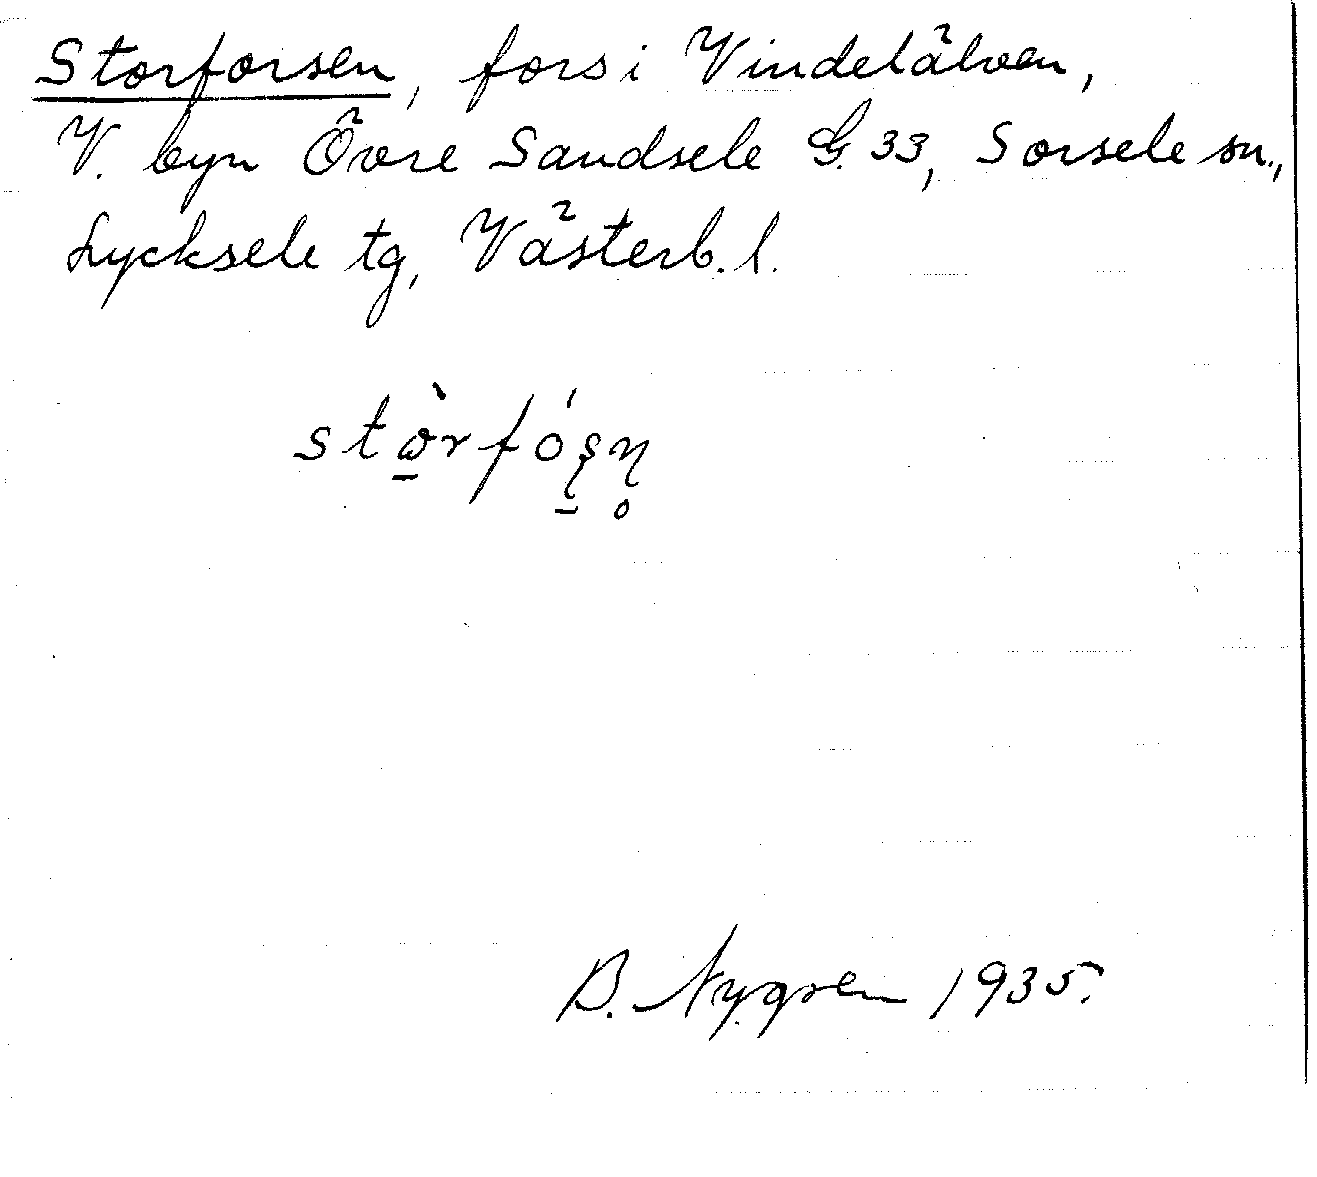 Storforsen, fors i Vindelälven,
V. byn Övre Sandsele G. 33, Sorsele sn.,
Lycksele tg, Västerb. l.
B. Nygren 1935.